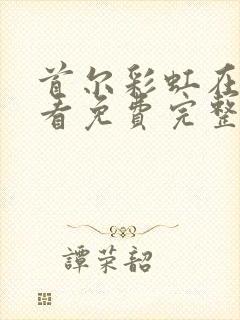 首尔彩虹在
看免费完整
譚荣韶